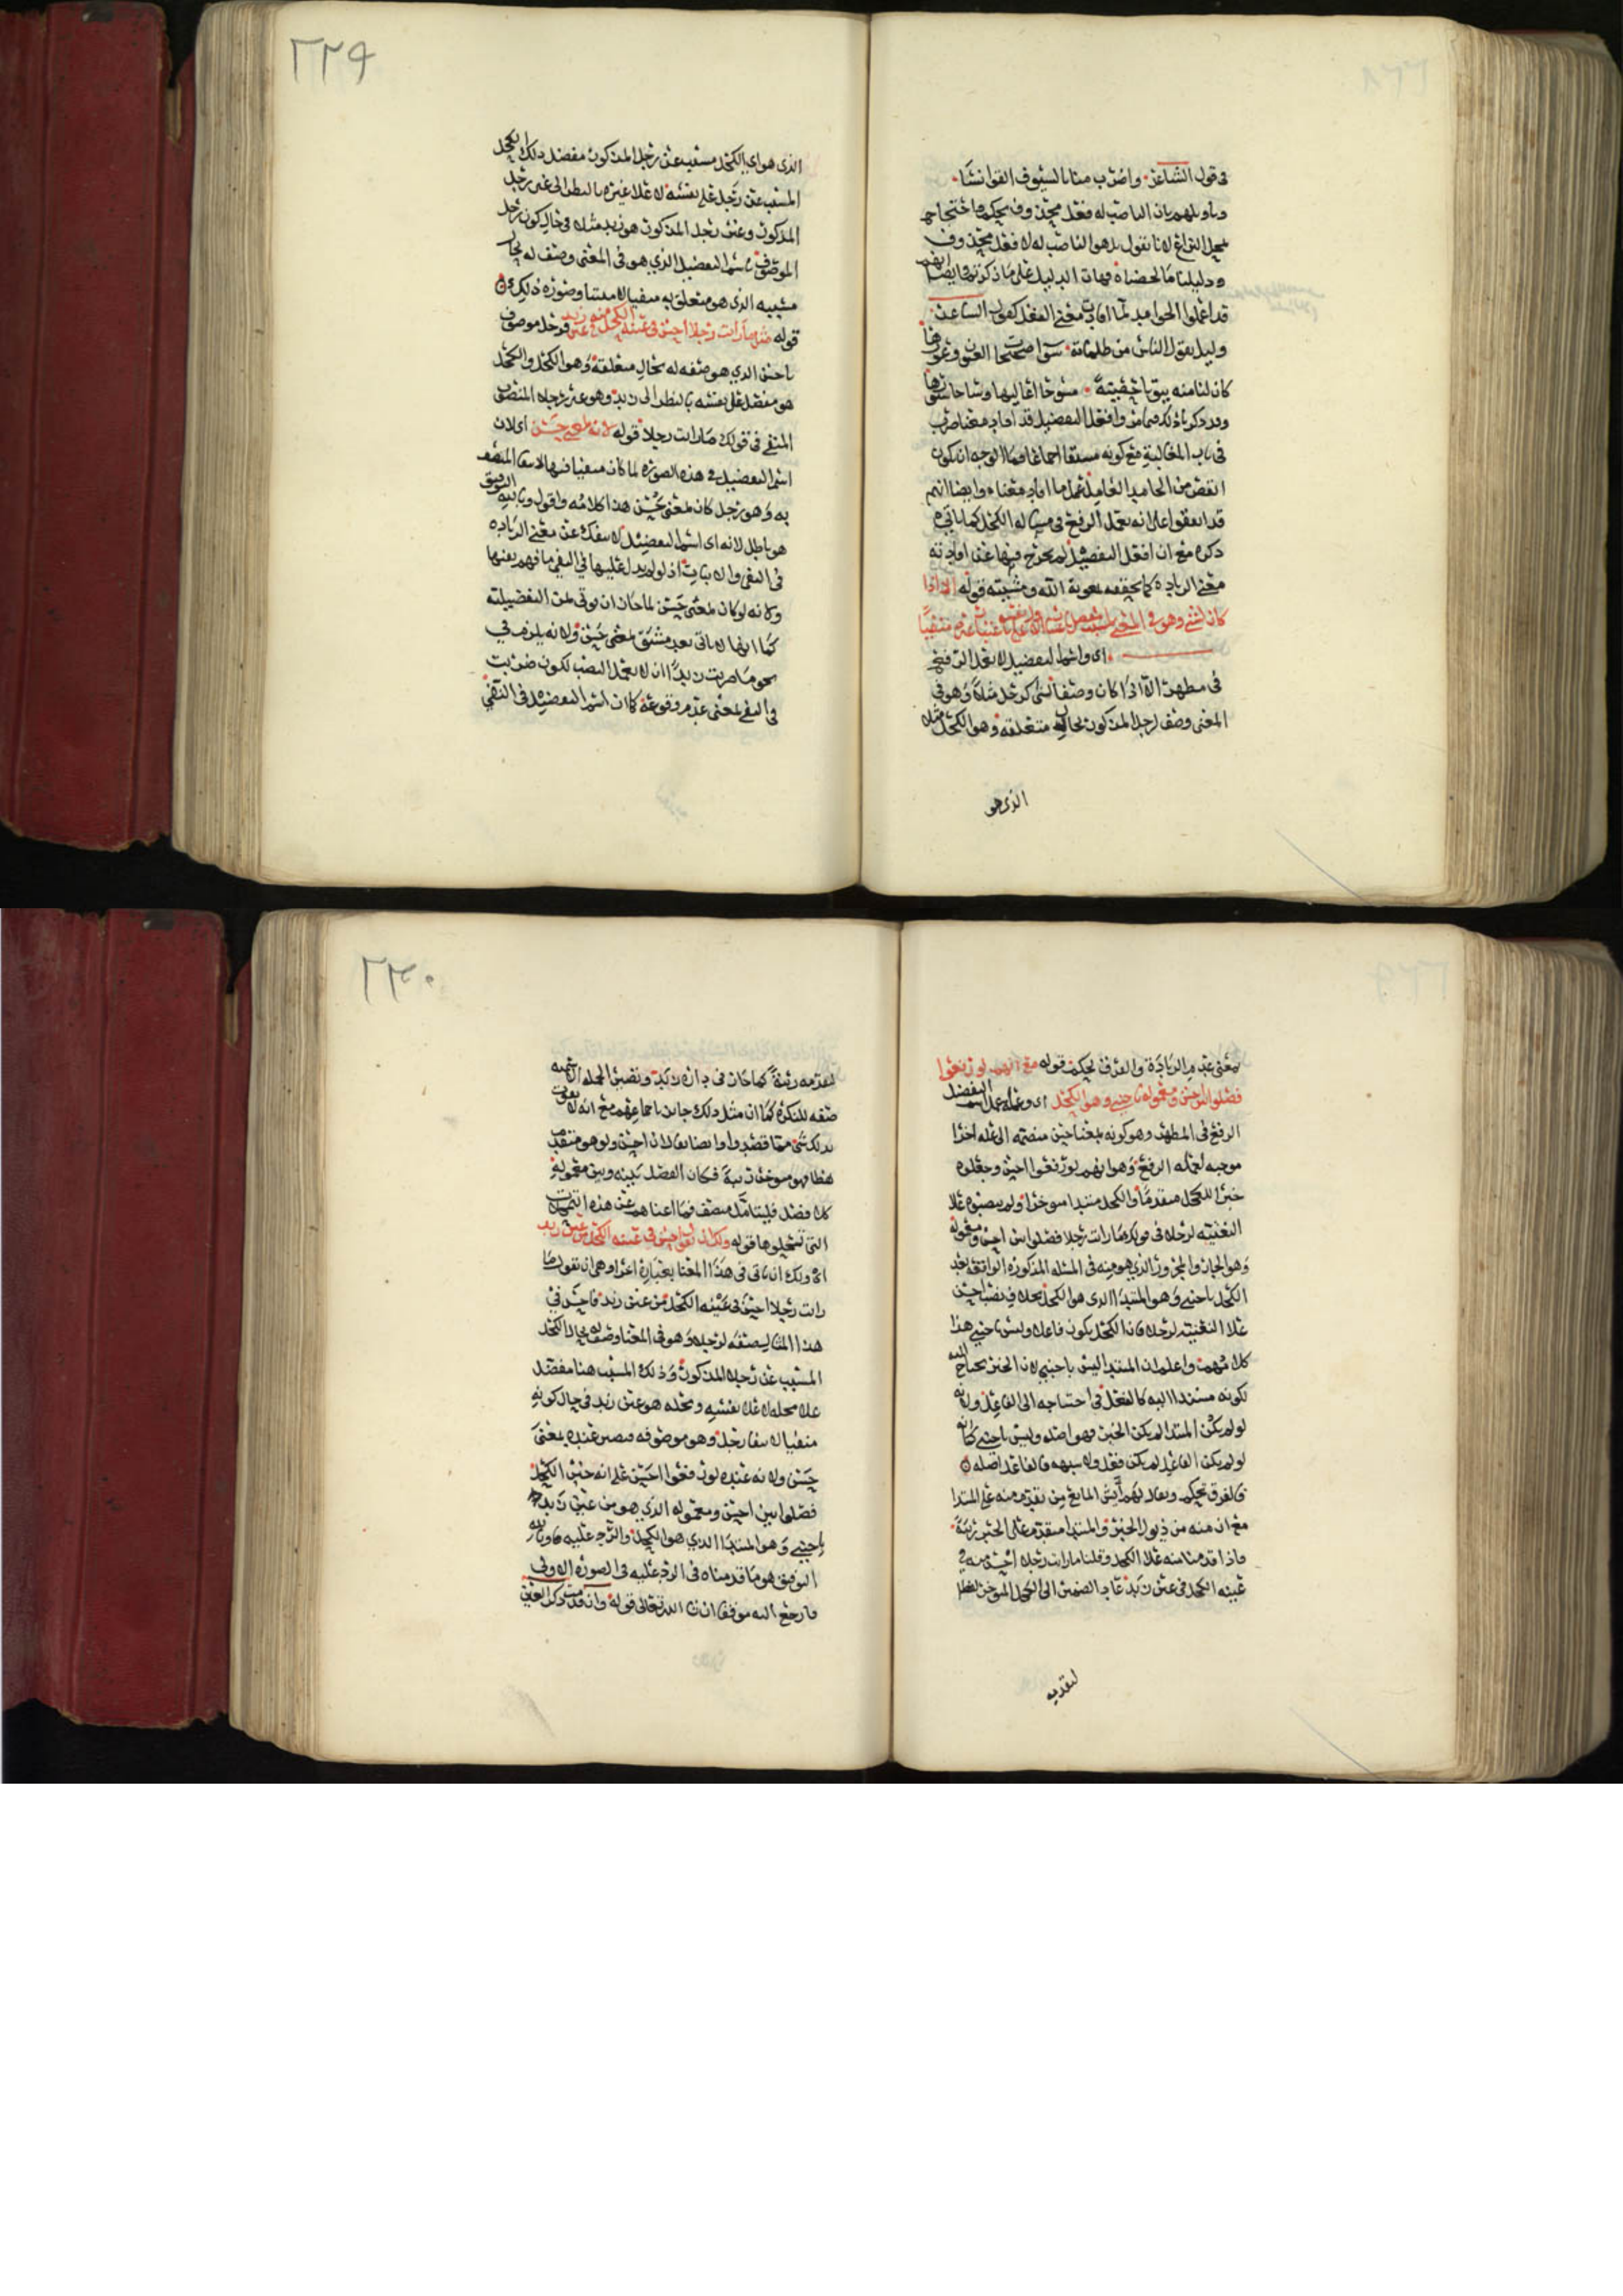 في قول الشاعر واضرب منا بالسيوف القوانسا
وتاويلهم بان الناصب له فعل محذوف يحكم واحتجاج
بمحل النزاع لانا نقول بل هو الناصب له لا فعل محذوف
ودليلنا ما لحضناه فهات الدليل على ما ذكرتم وايضا
قد اعملوا الجوامد لما افادت معنى الفعل كقول الشاعر
وليل يقول الناس من ظلماته سوا صحيحات العيون وعورها
كان لنا منه بيوتا حصينة مسوحا اعاليها وساجا ستورها
وافعل التفضيل قد افاد معنا ضرب
في باب المغالبة مع كونه مشتقا اجماعا فما الوجه ان يكون
انقص من الجامد العامل عمل ما افاد معناه وايضا انهم
قد اتفقوا على انه يعمل الرفع في مساله الكحل كما ياتي
ذكره مع ان افعل التفضيل لم يخرج فيها عن افادته
معنى الزياده كما نحققه بمعونة الله ومشيته قوله الا اذا
كان لشي وهو في المعنى لمسبب مفضل باعتبار على نفسه باعتبار غيره منفيا
اي واسم التفضيل لا يعمل الرفع
في مظهر الا اذا كان وصفا لشي كرجل مثلا وهو في
المعنى وصف لرجل المذكور بحال متعلقه وهو الكحل مثلا
الذي هو
٢٢٩
الذي هو اي الكحل مسبب عن رجل المذكور مفضل ذلك الكحل
المسبب عن رجل على نفسه لا على غيره بالنظر الى غير رجل
المذكور وغير رجل المذكور هو زيد مثلا في حال كون رجل
الموصوف باسم التفضيل الذي هو في المعنى وصف له بحال
مسببه الذي هو متعلق به منفيا لا مثبتا وصوره ذلك
قوله مثل ما رايت رجلا احسن في عينه الكحل منه في عين زيد فرجل موصوف
باحسن الذي هو صفه له بحال متعلقه وهو الكحل والكحل
هو مفضل على نفسه بالنظر الى زيد وهو غير رجل المتصف
المنفي في قولك ما رايت رجلا قوله لانه بمعنى حسن اي لان
اسم التفضيل في هذه الصوره لما كان منفيا فيها لانتفا المتصف
به وهو رجل كان بمعنى حسن هذا كلامه واقول وبالله التوفيق
هو باطل لانه اي اسم التفضيل لا ينفك عن معنى الزياده
في النفي والاثبات اذ لو لم يدل عليها في النفي ما فهم نفيها
ولانه لو كان بمعنى حسن لما جاز ان يوتى بمن التفضيليه
كما انها لا تاتي بعد مشتق بمعنى حسن ولانه يلزم في
نحو ما ضربت زيدا ان لا يعمل النصب لكون ضربت
في النفي بمعنى عدم وقوعه كما ان اسم التفضيل في النفي
بمعنى عدم الزيادة والفرق تحكم قوله مع انهم لو رفعوا
فصلوا بين احسن ومعموله باجنبي وهو الكحل اي وعمله عمل اسم التفضيل
الرفع في المظهر وهو كونه بمعنا حسن منضمة الى علة اخرا
موجبه لعمله الرفع وهو انهم لو رفعوا احسن وجعلوه
خبرا للكحل متقدما والكحل مبتدا موخرا ولم ينصبوه على
التبعيه لرجلا في قولك ما رايت رجلا فصلوا بين احسن ومعموله
وهو الجار والمجرور الذي هو منه في المثله المذكوره الواقعه بعد
الكحل باجنبي وهو المبتدا الذي هو الكحل بخلاف نصب احسن
على التبعيه لرجلا فان الكحل يكون فاعلا وليس باجنبي هذا
كلامهم واعلم ان المبتدا ليس باجنبي لان الخبر يحتاج اليه
لكونه مسندا اليه كالفعل في احتياجه الى الفاعل ولانه
لو لم يكن المبتدا لم يكن الخبر فهو اصله وليس باجنبي كما انه
لو لم يكن الفاعل لم يكن فعل ولا شبهه فالفاعل اصله
فالفرق تحكم ويقال لهم ايش المانع من تقدم منه على المبتدا
مع ان منه من ذيول الخبر والمبتدا متقدم على الخبر رتبة
فاذا قدمنا منه على الكحل وقلنا ما رايت رجلا احسن منه في
عينه الكحل في عين زيد عاد الضمير الى الكحل الموخر لفظا
لتقدمه
٢٣٠
لتقدمه رتبة كما جاز في داره زيد وتصير الجمله الاسميه
صفه للنكره كما ان مثل ذلك جايز باجماعهم مع انه لا يفوت
بذلك شي مما قصدوا وايضا يقال ان احسن ولو هو متقدم
لفظا فهو موخر رتبة فكان الفصل بينه وبين معموله
كلا فصل فليتامل منصف فما اغناهم عن هذه التمحلات
التي تمحلوها قوله ولك ان تقول احسن في عينه الكحل من عين زيد
اي ولك ان تاتي في هذا المعنا بعبارة اخرا وهي ان تقول ما
رايت رجلا احسن في عينه الكحل من عين زيد فاحسن في
هذا المثال صفه لرجلا وهو في المعنا وصف له بحال الكحل
المسبب عن رجلا المذكور وذلك المسبب هنا مفضل
على محله لا على نفسه ومحله هو عين زيد في حال كونه
منفيا لانتفا رجل وهو موصوفه فيصير عنده بمعنى
حسن ولانه عنده لو رفعوا احسن على انه خبر الكحل
فصلوا بين احسن ومعموله الذي هو من عين زيد
باجنبي وهو المبتدا الذي هو الكحل والرد عليه وبالله
التوفيق هو ما قدمناه في الرد عليه في الصوره الاولى
فارجع اليه موفقا ان شا الله تعالى قوله وان قدمت ذكر العين